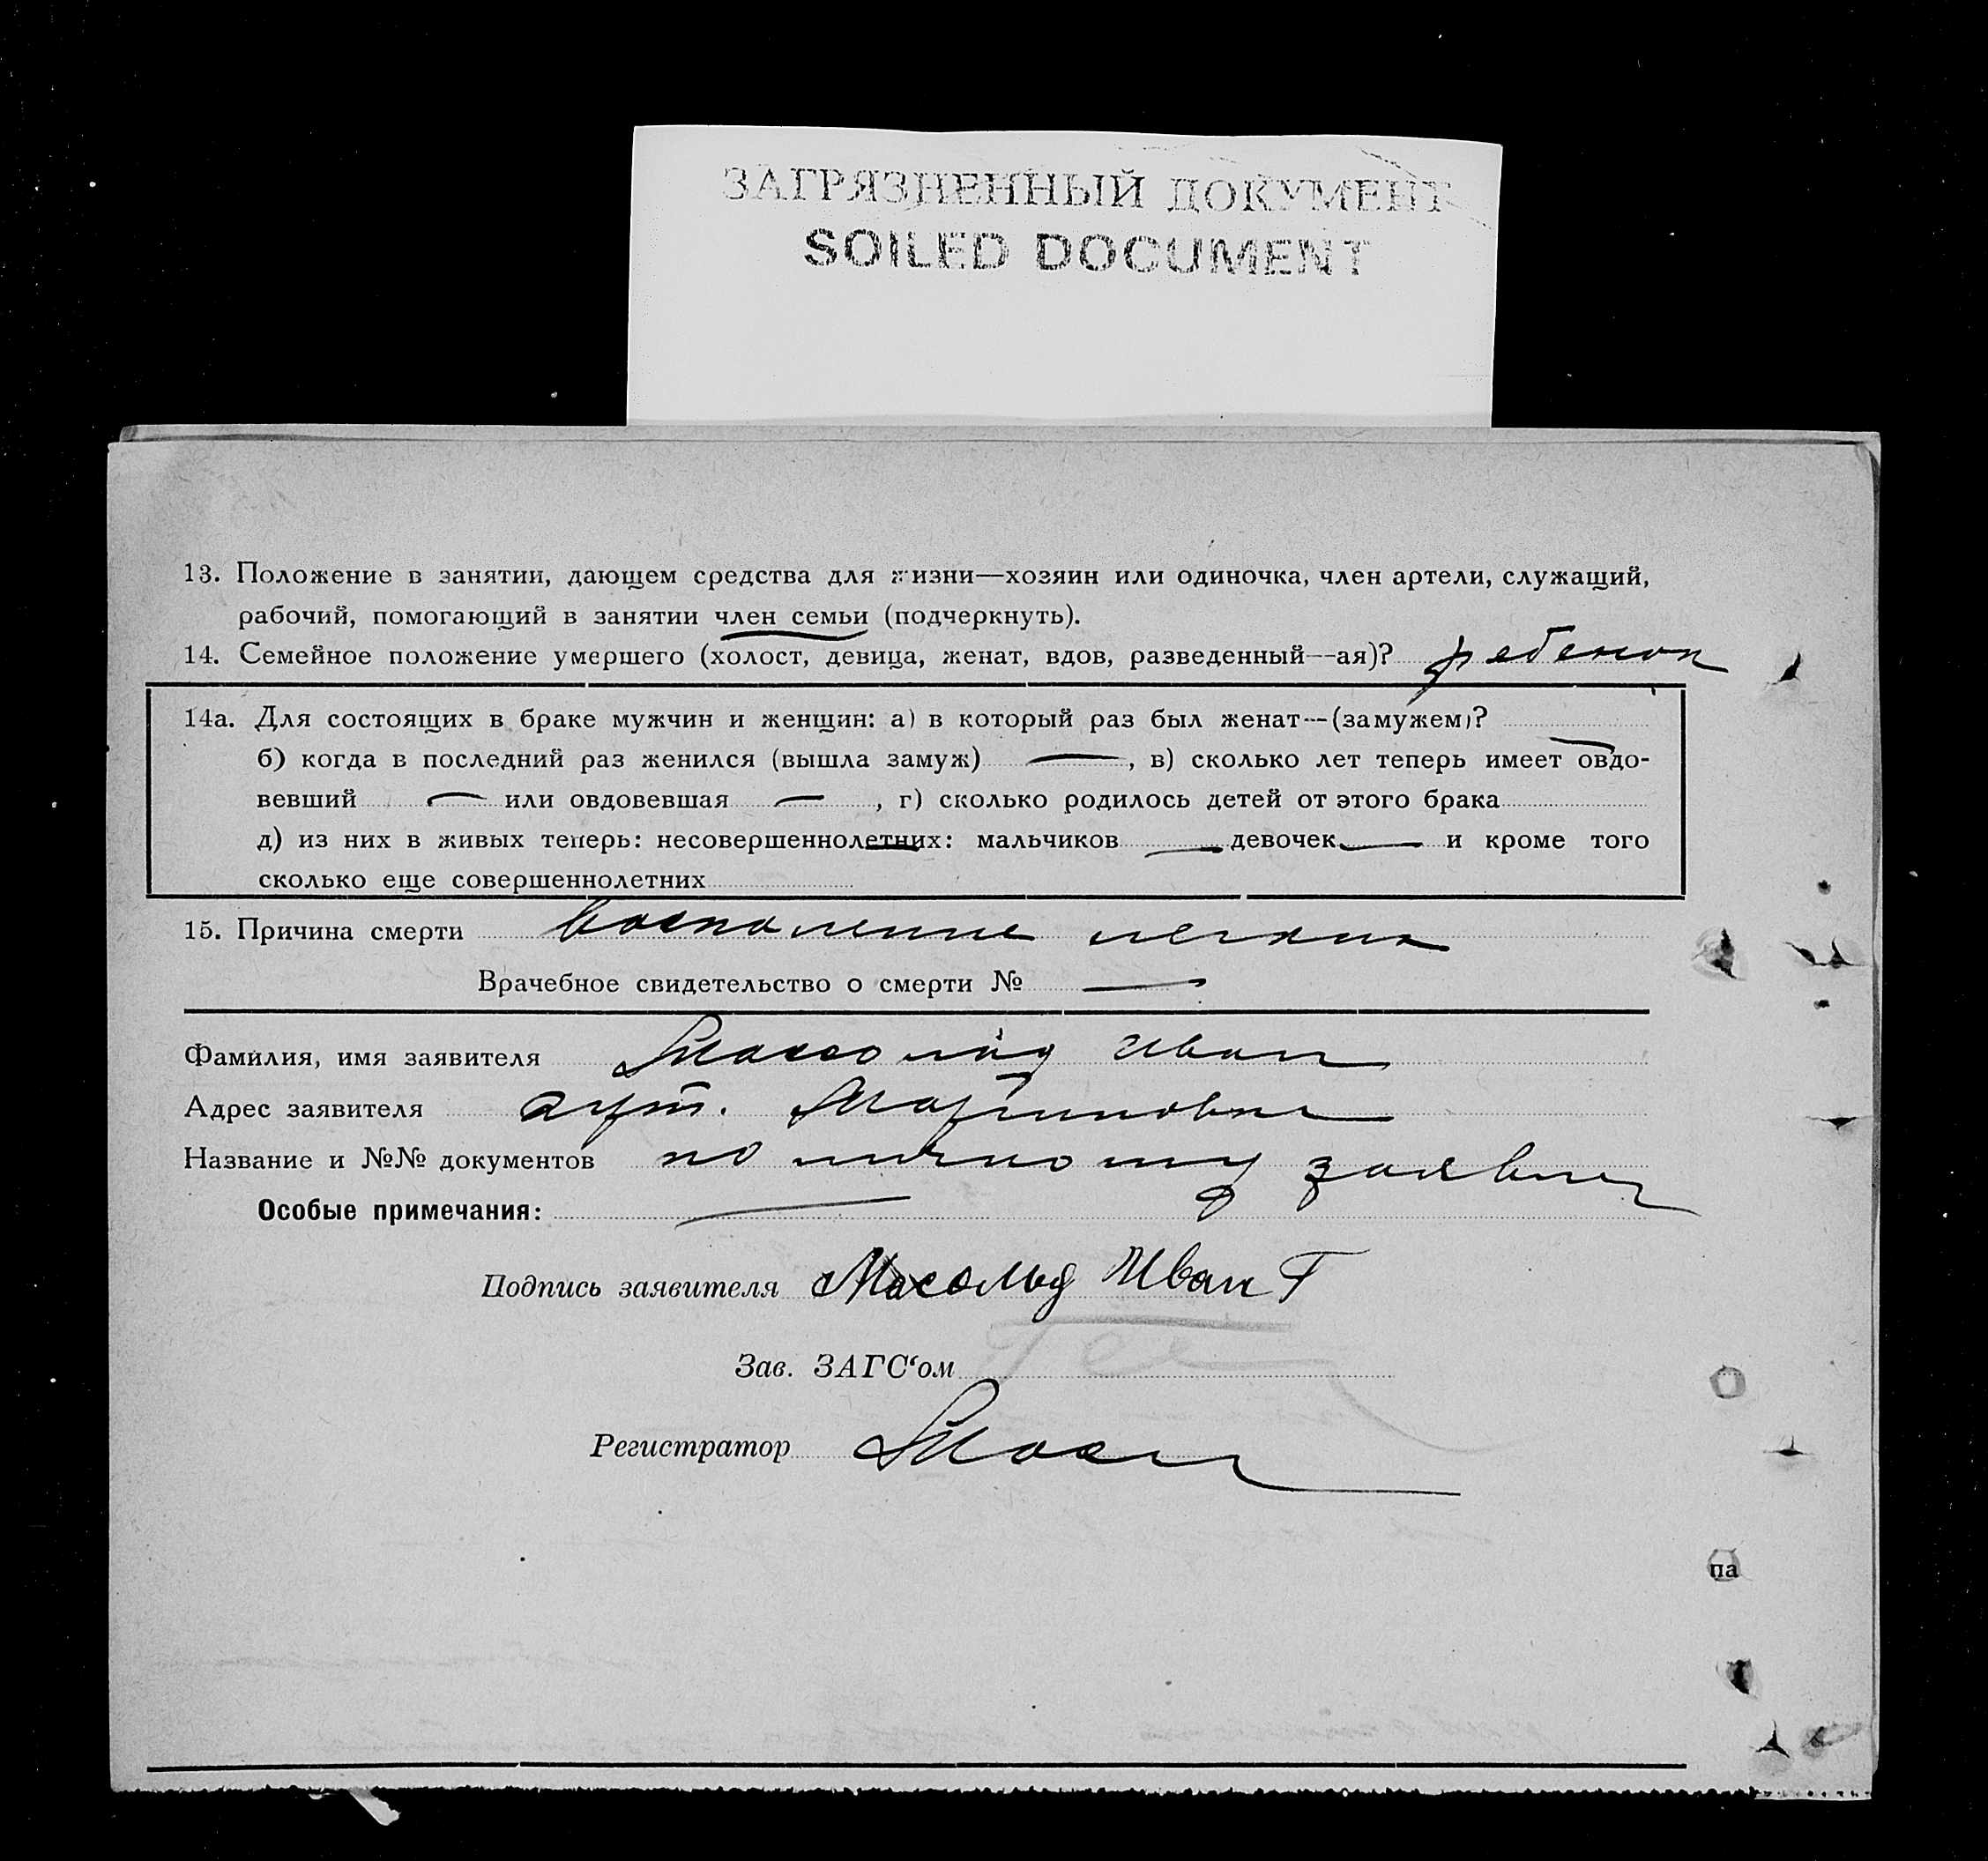 ЗАГРЯЗНЕННЫЙ ДОКУМЕНТ
SOILED DOCUMENT
13. Положение в занятии, дающем средства для жизни—хозяин или одиночка, член артели, служащий,
рабочий, помогающий в занятии член семьи (подчеркнуть).
14. Семейное положение умершего (холост, девица, женат, вдов, разведенный—ая)? ребенок
14а. Для состоящих в браке мужчин и женщин: а) в который раз был женат—(замужем)?
б) когда в последний раз женился (вышла замуж) —, в) сколько лет теперь имеет овдо-
вевший — или овдовевшая —, г) сколько родилось детей от этого брака
д) из них в живых теперь: несовершеннолетних: мальчиков — девочек — и кроме того
сколько еще совершеннолетних
15. Причина смерти воспаление легких
Врачебное свидетельство о смерти № —
Фамилия, имя заявителя Массольд Иван
Адрес заявителя хут. Мартиновка
Название и №№ документов по личному заявлен
Особые примечания: —
Подпись заявителя Масольд Иван Г
Зав. ЗАГС‘ом
Регистратор
па